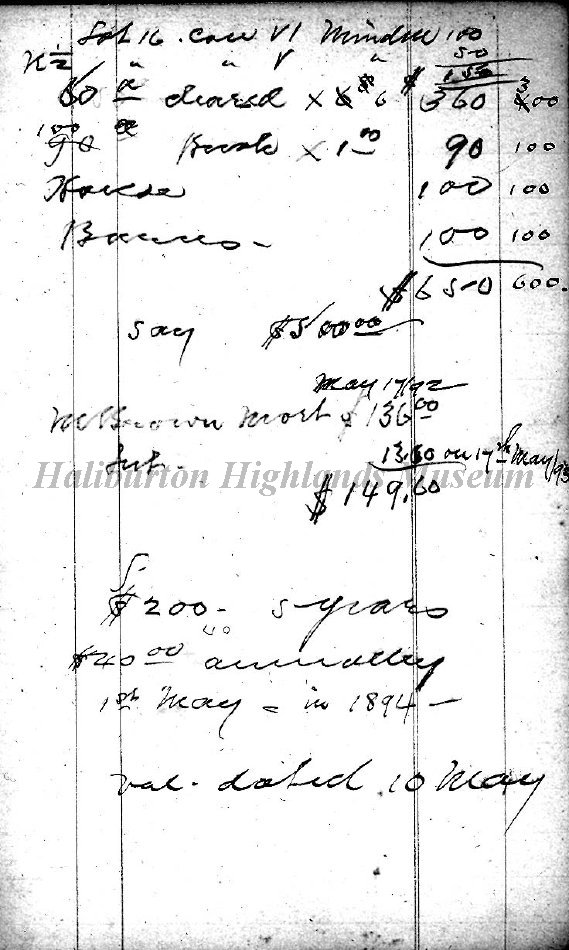 Lot 16. Con VI Minden 100
N 1/2 " " V " 50
150
60 ac cleared x $6 $360 300
100 ac
90 Bush x 1.00 90 100
House 100 100
Barns - 100 100
$650 600.
say $500.00
May 17/92
McBrown Mort $136.00
Int. 13.60 on 17th May/93
$149.60
$200 - 5 years
$40.00 annually
1st May = in 1894 -
val. dated 10 May
Haliburton Highlands Museum